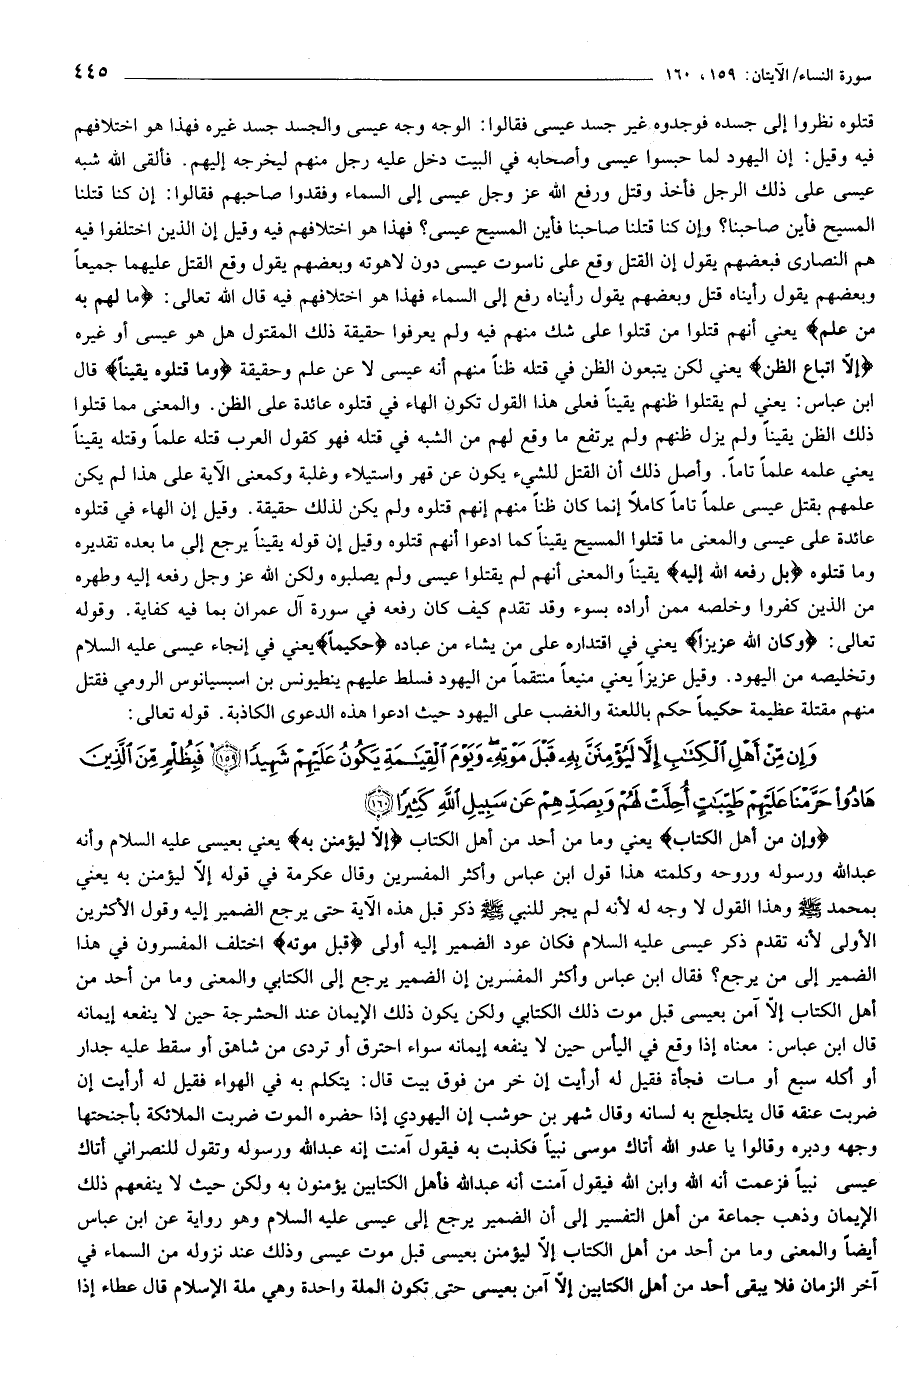 سورة النساء/ الآيتان: ١٥٩، ١٦٠ ٤٤٥
قتلوه نظروا إلى جسده فوجدوه غير جسد عيسى فقالوا: الوجه وجه عيسى والجسد جسد غيره فهذا هو اختلافهم
فيه وقيل: إن اليهود لما حبسوا عيسى وأصحابه في البيت دخل عليه رجل منهم ليخرجه إليهم. فألقى الله شبه
عيسى على ذلك الرجل فأخذ وقتل ورفع الله عز وجل عيسى إلى السماء وفقدوا صاحبهم فقالوا: إن كنا قتلنا
المسيح فأين صاحبنا؟ وإن كنا قتلنا صاحبنا فأين المسيح عيسى؟ فهذا هو اختلافهم فيه وقيل إن الذين اختلفوا فيه
هم النصارى فبعضهم يقول إن القتل وقع على ناسوت عيسى دون لاهوته وبعضهم يقول وقع القتل عليهما جميعاً
وبعضهم يقول رأيناه قتل وبعضهم يقول رأيناه رفع إلى السماء فهذا هو اختلافهم فيه قال الله تعالى: ﴿ما لهم به
من علم﴾ يعني أنهم قتلوا من قتلوا على شك منهم فيه ولم يعرفوا حقيقة ذلك المقتول هل هو عيسى أو غيره
﴿إلّا اتباع الظن﴾ يعني لكن يتبعون الظن في قتله ظناً منهم أنه عيسى لا عن علم وحقيقة ﴿وما قتلوه يقيناً﴾ قال
ابن عباس: يعني لم يقتلوا ظنهم يقيناً فعلى هذا القول تكون الهاء في قتلوه عائدة على الظن. والمعنى مما قتلوا
ذلك الظن يقيناً ولم يزل ظنهم ولم يرتفع ما وقع لهم من الشبه في قتله فهو كقول العرب قتله علماً وقتله يقيناً
يعني علمه علماً تاماً. وأصل ذلك أن القتل للشيء يكون عن قهر واستيلاء وغلبة وكمعنى الآية على هذا لم يكن
علمهم بقتل عيسى علماً تاماً كاملاً إنما كان ظناً منهم إنهم قتلوه ولم يكن لذلك حقيقة. وقيل إن الهاء في قتلوه
عائدة على عيسى والمعنى ما قتلوا المسيح يقيناً كما ادعوا أنهم قتلوه وقيل إن قوله يقيناً يرجع إلى ما بعده تقديره
وما قتلوه ﴿بل رفعه الله إليه﴾ يقيناً والمعنى أنهم لم يقتلوا عيسى ولم يصلبوه ولكن الله عز وجل رفعه إليه وطهره
من الذين كفروا وخلصه ممن أراده بسوء وقد تقدم كيف كان رفعه في سورة آل عمران بما فيه كفاية. وقوله
تعالى: ﴿وكان الله عزيزاً﴾ يعني في اقتداره على من يشاء من عباده ﴿حكيماً﴾يعني في إنجاء عيسى عليه السلام
وتخليصه من اليهود. وقيل عزيزاً يعني منيعاً منتقماً من اليهود فسلط عليهم ينطيونس بن اسبسيانوس الرومي فقتل
منهم مقتلة عظيمة حكيماً حكم باللعنة والغضب على اليهود حيث ادعوا هذه الدعوى الكاذبة. قوله تعالى:
وَإِن مِّنْ أَهْلِ الْكِتَابِ إِلَّا لَيُؤْمِنَنَّ بِهِ قَبْلَ مَوْتِهِ وَيَوْمَ الْقِيَامَةِ يَكُونُ عَلَيْهِمْ شَهِيدًا ﴿١٥٩﴾ فَبِظُلْمٍ مِّنَ الَّذِينَ
هَادُوا حَرَّمْنَا عَلَيْهِمْ طَيِّبَاتٍ أُحِلَّتْ لَهُمْ وَبِصَدِّهِمْ عَن سَبِيلِ اللَّهِ كَثِيرًا ﴿١٦٠﴾
﴿وإن من أهل الكتاب﴾ يعني وما من أحد من أهل الكتاب ﴿إلّا ليؤمنن به﴾ يعني بعيسى عليه السلام وأنه
عبدالله ورسوله وروحه وكلمته هذا قول ابن عباس وأكثر المفسرين وقال عكرمة في قوله إلّا ليؤمنن به يعني
بمحمد ﷺ وهذا القول لا وجه له لأنه لم يجر للنبي ﷺ ذكر قبل هذه الآية حتى يرجع الضمير إليه وقول الأكثرين
الأولى لأنه تقدم ذكر عيسى عليه السلام فكان عود الضمير إليه أولى ﴿قبل موته﴾ اختلف المفسرون في هذا
الضمير إلى من يرجع؟ فقال ابن عباس وأكثر المفسرين إن الضمير يرجع إلى الكتابي والمعنى وما من أحد من
أهل الكتاب إلّا آمن بعيسى قبل موت ذلك الكتابي ولكن يكون ذلك الإيمان عند الحشرجة حين لا ينفعه إيمانه
قال ابن عباس: معناه إذا وقع في اليأس حين لا ينفعه إيمانه سواء احترق أو تردى من شاهق أو سقط عليه جدار
أو أكله سبع أو مات فجأة فقيل له أرأيت إن خر من فوق بيت قال: يتكلم به في الهواء فقيل له أرأيت إن
ضربت عنقه قال يتلجلج به لسانه وقال شهر بن حوشب إن اليهودي إذا حضره الموت ضربت الملائكة بأجنحتها
وجهه ودبره وقالوا يا عدو الله أتاك موسى نبياً فكذبت به فيقول آمنت إنه عبدالله ورسوله وتقول للنصراني أتاك
عيسى نبياً فزعمت أنه الله وابن الله فيقول آمنت أنه عبدالله فأهل الكتابين يؤمنون به ولكن حيث لا ينفعهم ذلك
الإيمان وذهب جماعة من أهل التفسير إلى أن الضمير يرجع إلى عيسى عليه السلام وهو رواية عن ابن عباس
أيضاً والمعنى وما من أحد من أهل الكتاب إلّا ليؤمنن بعيسى قبل موت عيسى وذلك عند نزوله من السماء في
آخر الزمان فلا يبقى أحد من أهل الكتابين إلّا آمن بعيسى حتى تكون الملة واحدة وهي ملة الإسلام قال عطاء إذا